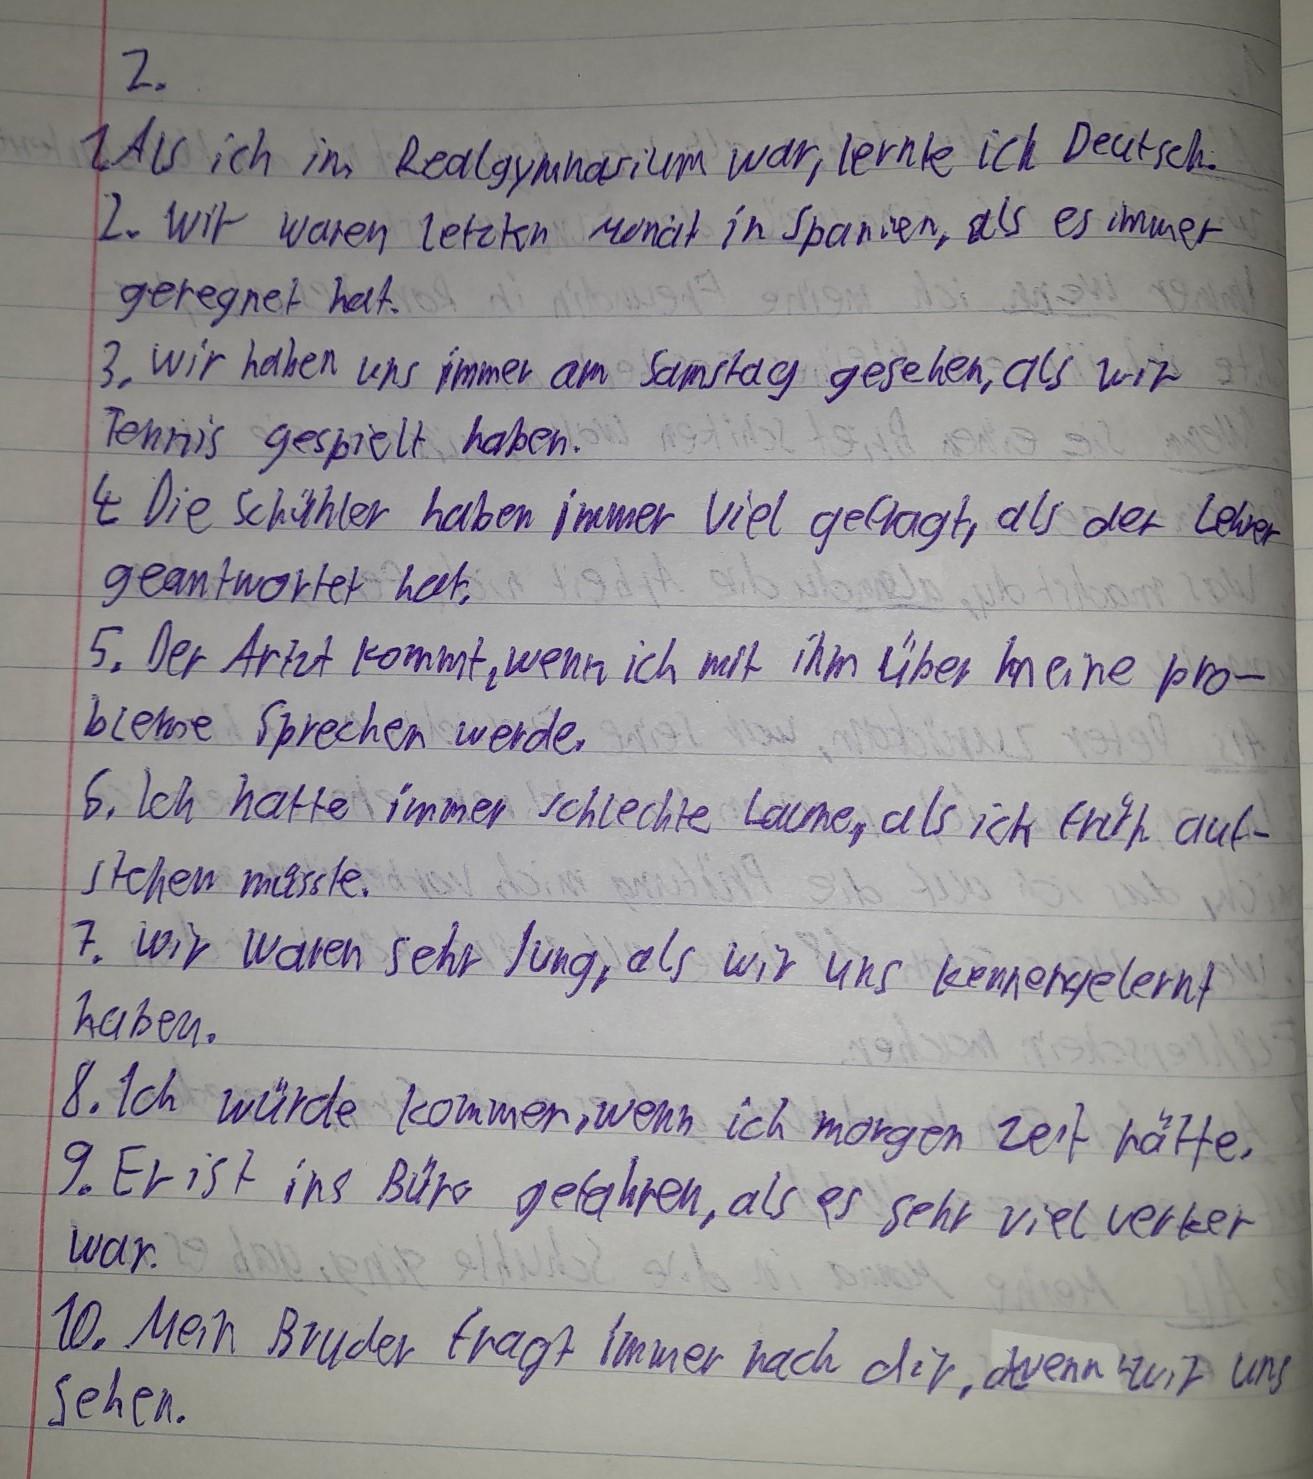 2.
1. Als ich im Realgymnasium war, lernte ich Deutsch.
2. Wir waren letztn Monat in Spanien, als es immer
geregnet hat.
3. Wir haben uns immer am Samstag gesehen, als wir
Tennis gespielt haben.
4. Die Schühler haben immer viel gefragt, als der Lehrer
geantwortet hat.
5. Der Artzt kommt, wenn ich mit ihm über meine pro-
bleme sprechen werde.
6. Ich hatte immer schlechte Laune, als ich früh auf-
stehen müsste.
7. Wir waren sehr Jung, als wir uns kennengelernt
haben.
8. Ich würde kommen, wenn ich morgen Zeit hätte.
9. Er ist ins Büro gefahren, als es sehr viel verker
war.
10. Mein Bruder fragt immer nach dir, wenn wir uns
sehen.